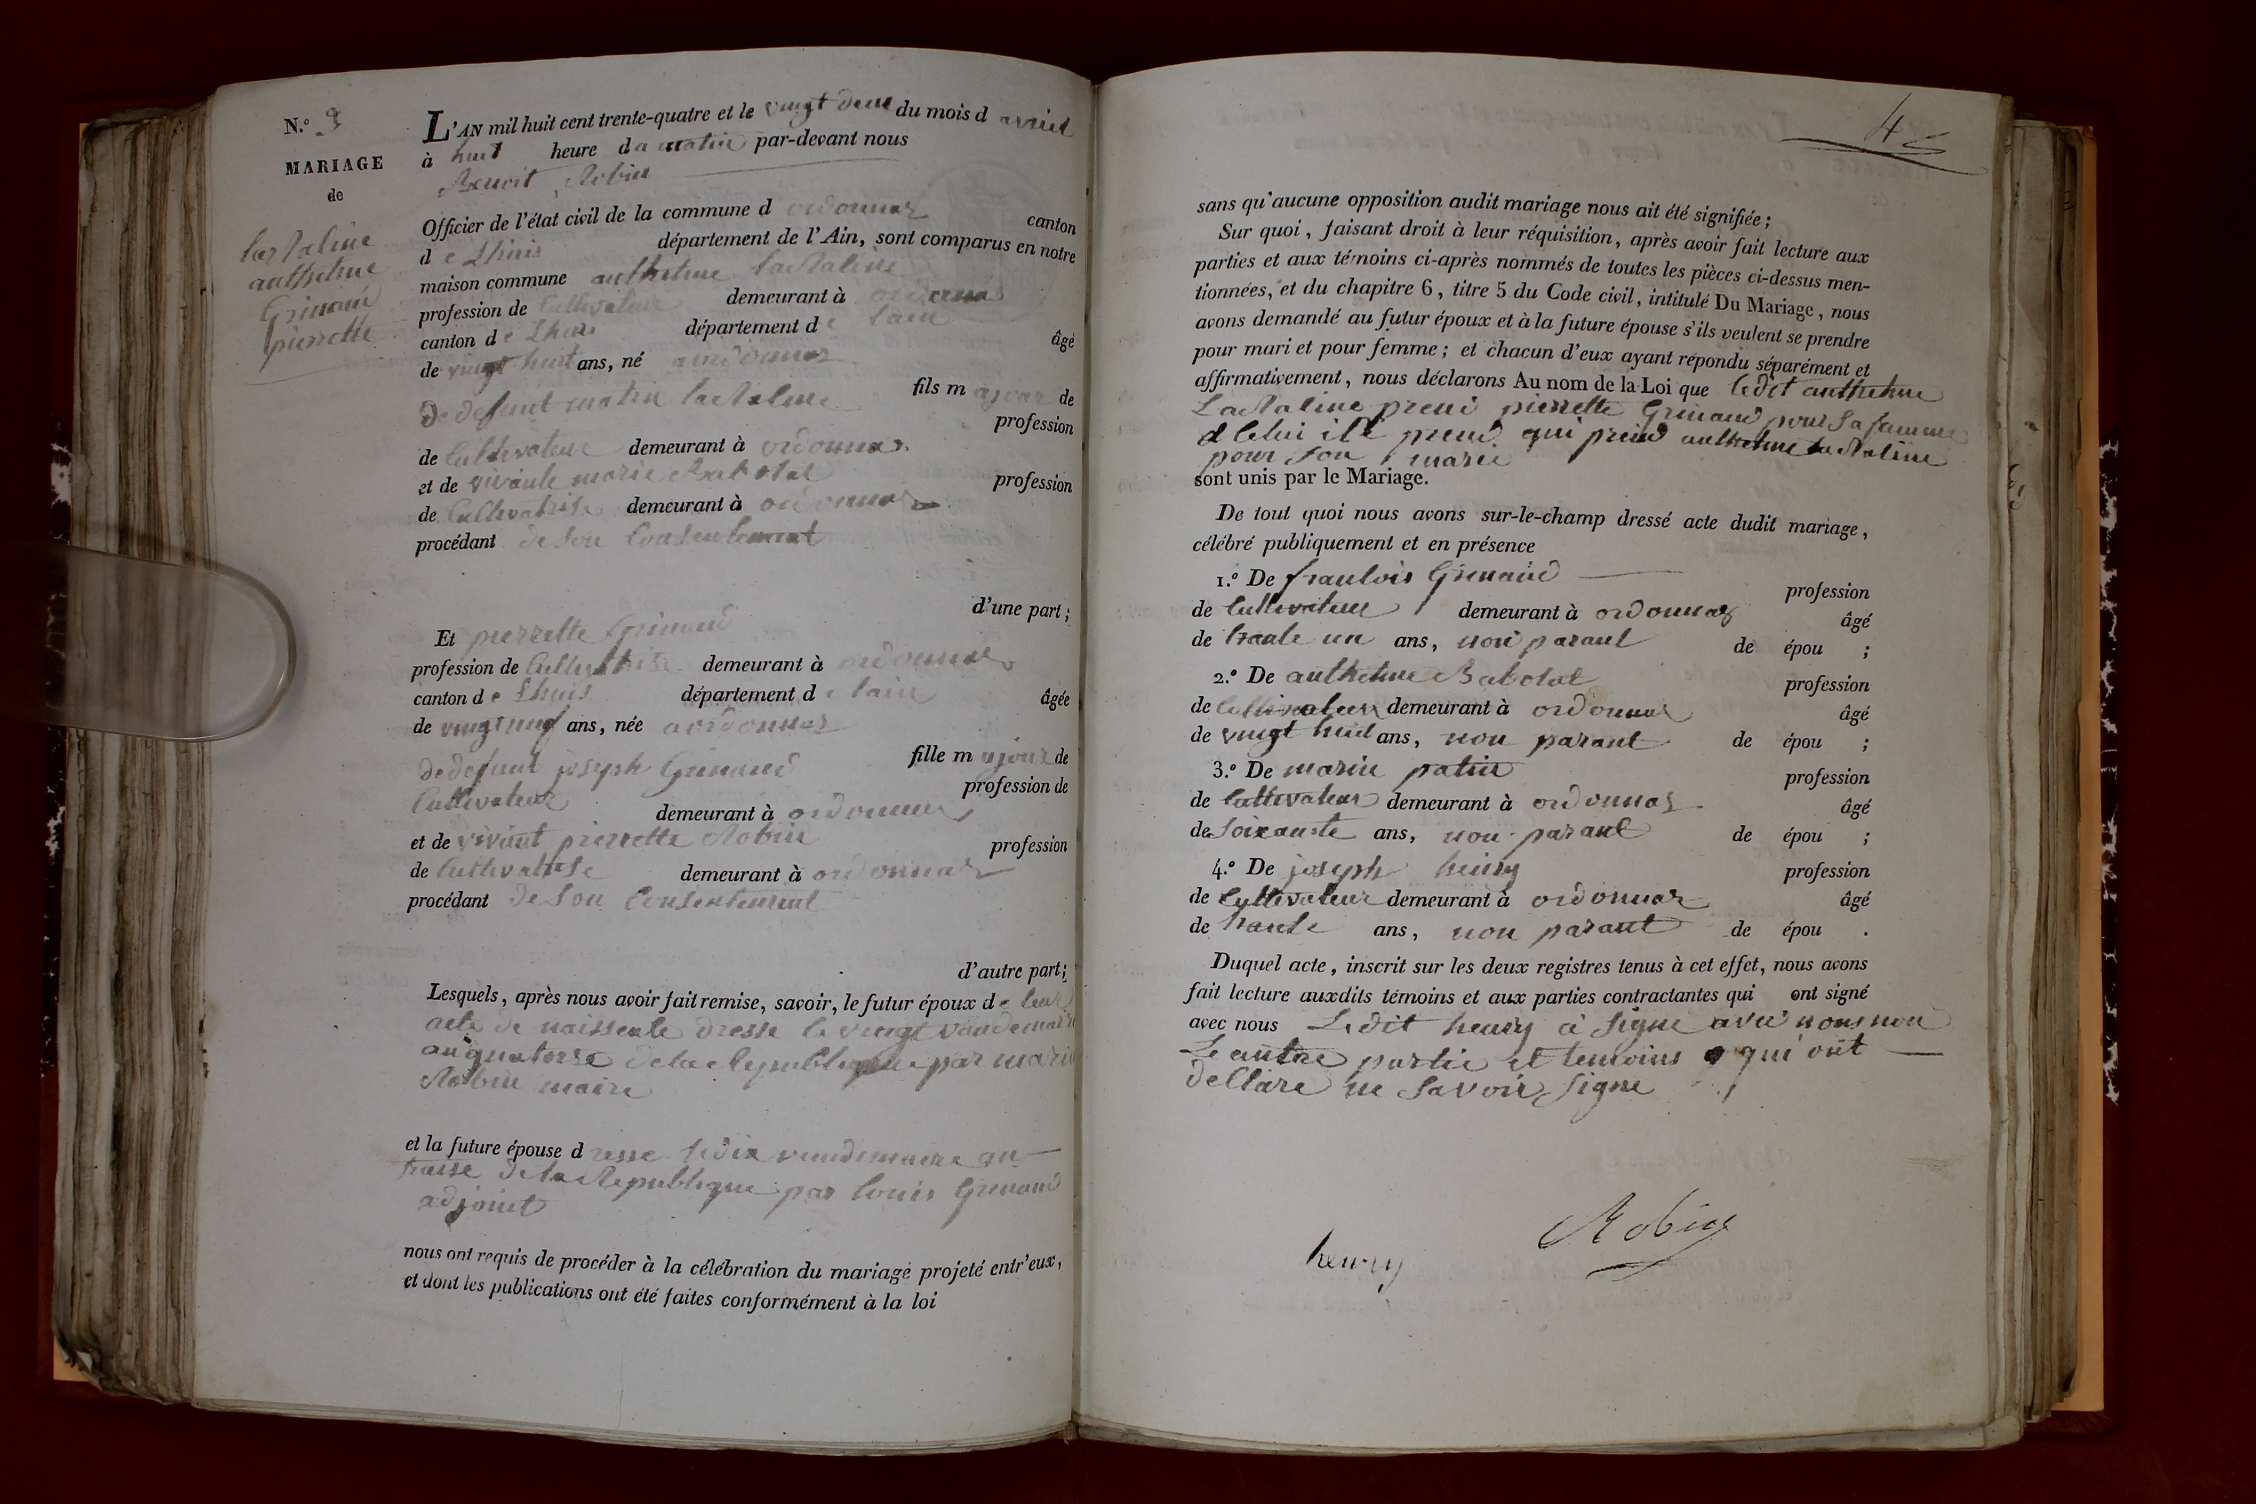 N.º 9
MARIAGE
de
lastaline
anthelme
Grinand
pierrette
L'AN mil huit cent trente-quatre et le vingt deux du mois d avriel
à huit heure du matin par-devant nous
Benoit Robin
Officier de l'état civil de la commune d ordonnaz canton
d e Lhuis département de l'Ain, sont comparus en notre
maison commune anthelme lastaline
profession de Cultivateur demeurant à ordonnaz
canton d e Lhuis département d e lain âgé
de vingt huit ans, né a ordonnaz
fils m ajeur de
De defunt matin lastaline profession
de Cultivateur demeurant à ordonnaz
et de vivante marie Babolat profession
de Cultivatrise demeurant à ordonnaz
procédant de son Consentement
d'une part ;
Et pierrette Grinand
profession de Cultivatrise demeurant à ordonnaz
canton d e Lhuis département d e lain âgée
de vingt neuf ans, née a ordonnaz
fille m ajour de
De defunt joseph Grinand profession de
Cultivateur demeurant à ordonnaz
et de vivant pierrette Robin profession
de Cultivatrise demeurant à ordonnaz
procédant de son Consentement
d'autre part ;
Lesquels, après nous avoir fait remise, savoir, le futur époux d e leur
acte de naissente dresse le vingt vandemaire
an quatorse de la Republique par marin
Robin maire
et la future épouse d resse le dix vandemaire an
traise de la Republique par louis Grinand
adjoint
nous ont requis de procéder à la célébration du mariage projeté entr'eux,
et dont les publications ont été faites conformément à la loi
45
sans qu'aucune opposition audit mariage nous ait été signifiée ;
Sur quoi, faisant droit à leur réquisition, après avoir fait lecture aux
parties et aux témoins ci-après nommés de toutes les pièces ci-dessus men-
tionnées, et du chapitre 6, titre 5 du Code civil, intitulé Du Mariage, nous
avons demandé au futur époux et à la future épouse s'ils veulent se prendre
pour mari et pour femme ; et chacun d'eux ayant répondu séparément et
affirmativement, nous déclarons Au nom de la Loi que ledit anthelme
Lastaline prend pierrette Grinand pour sa famme
prend qui prend anthelme lastaline
pour son marie
sont unis par le Mariage.
De tout quoi nous avons sur-le-champ dressé acte dudit mariage,
célébré publiquement et en présence
1.º De franlois Grinand profession
de Cultivateur demeurant à ordonnaz âgé
de trante un ans, non parant de épou ;
2.º De anthelme Babolat profession
de Cultivateur demeurant à ordonnaz âgé
de vingt huit ans, non parant de épou ;
3.º De marin patin profession
de Cultivateur demeurant à ordonnaz âgé
de Soixante ans, non parant de épou ;
4.º De joseph henry profession
de Cultivateur demeurant à ordonnaz âgé
de trante ans, non parant de épou .
Duquel acte, inscrit sur les deux registres tenus à cet effet, nous avons
fait lecture auxdits témoins et aux parties contractantes qui ont signé
avec nous Ledit henry a signe avec nous non
Le autre partie et temoins qui ont
declare ne savoir signe
henry
Robin